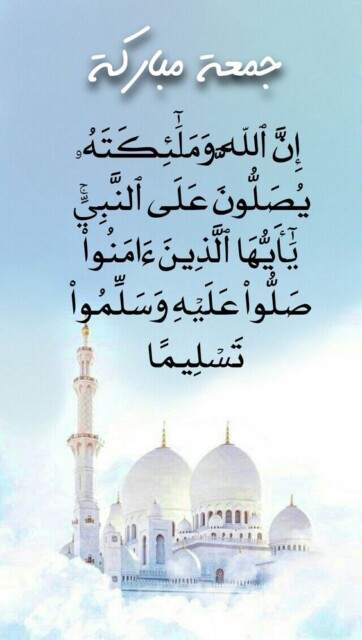 جمعة مباركة
إِنَّ ٱللَّهَ وَمَلَٰٓئِكَتَهُۥ
يُصَلُّونَ عَلَى ٱلنَّبِيِّۚ
يَٰٓأَيُّهَا ٱلَّذِينَ ءَامَنُوا۟
صَلُّوا۟ عَلَيْهِ وَسَلِّمُوا۟
تَسْلِيمًا